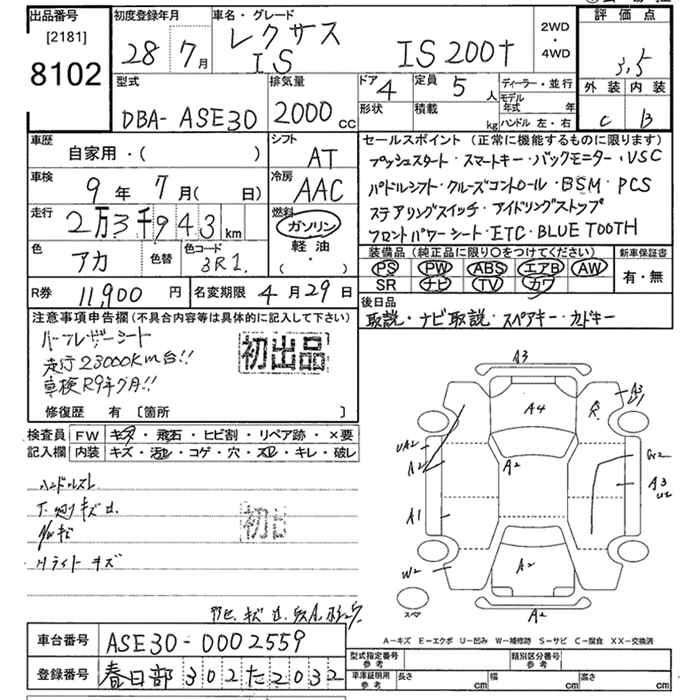 出品番号
[2181]
8102
初度登録年月
28 7月
車名・グレード
レクサス
IS
IS200t
2WD
・
4WD
評価点
3,5
外装 内装
C B
型式
DBA- ASE30
排気量
2000 cc
ドア
4
定員
5 人
形状
積載
kg
ディーラー・並行
モデル年式 年
ハンドル 左・右
車歴
自家用・( )
シフト
AT
車検
9年 7月( 日)
冷房
AAC
走行
2万3千943 km
燃料
ガソリン
軽油
・( )
色
アカ
色替
色コード
3R1.
R券
11,900 円
名変期限
4月29日
セールスポイント(正常に機能するものに限ります)
プッシュスタート・スマートキー・バックモニター・VSC
パドルシフト・クルーズコントロール・BSM・PCS
ステアリングスイッチ・アイドリングストップ
フロントパワーシート・ETC・BLUE TOOTH
装備品(純正品に限り〇をつけてください)
新車保証書
PS PW ABS エアB AW
SR ナビ TV カワ
有・無
後日品
取説・ナビ取説・スペアキー・カードキー
注意事項申告欄(不具合内容等は具体的に記入して下さい)
ハーフレザーシート
走行23000Km台!!
車検R9年7月!!
初出品
修復歴 有 [箇所 ]
検査員記入欄
FW キズ・飛石・ヒビ割・リペア跡・×要
内装 キズ・汚レ・コゲ・穴・スレ・キレ・破レ
ハンドルスレ
Hライト キズ
初出
A3
A4
A3
A2
A2
A2
A1
W2
A3
U2
A2
A2
スペア
A-キズ E-エクボ U-凹み W-補修跡 S-サビ C-腐食 XX-交換済
車台番号
ASE30-0002559
登録番号
春日部 302 た 2032
型式指定番号
参考
類別区分番号
参考
車庫証明用
参考
長さ cm
幅 cm
高さ cm